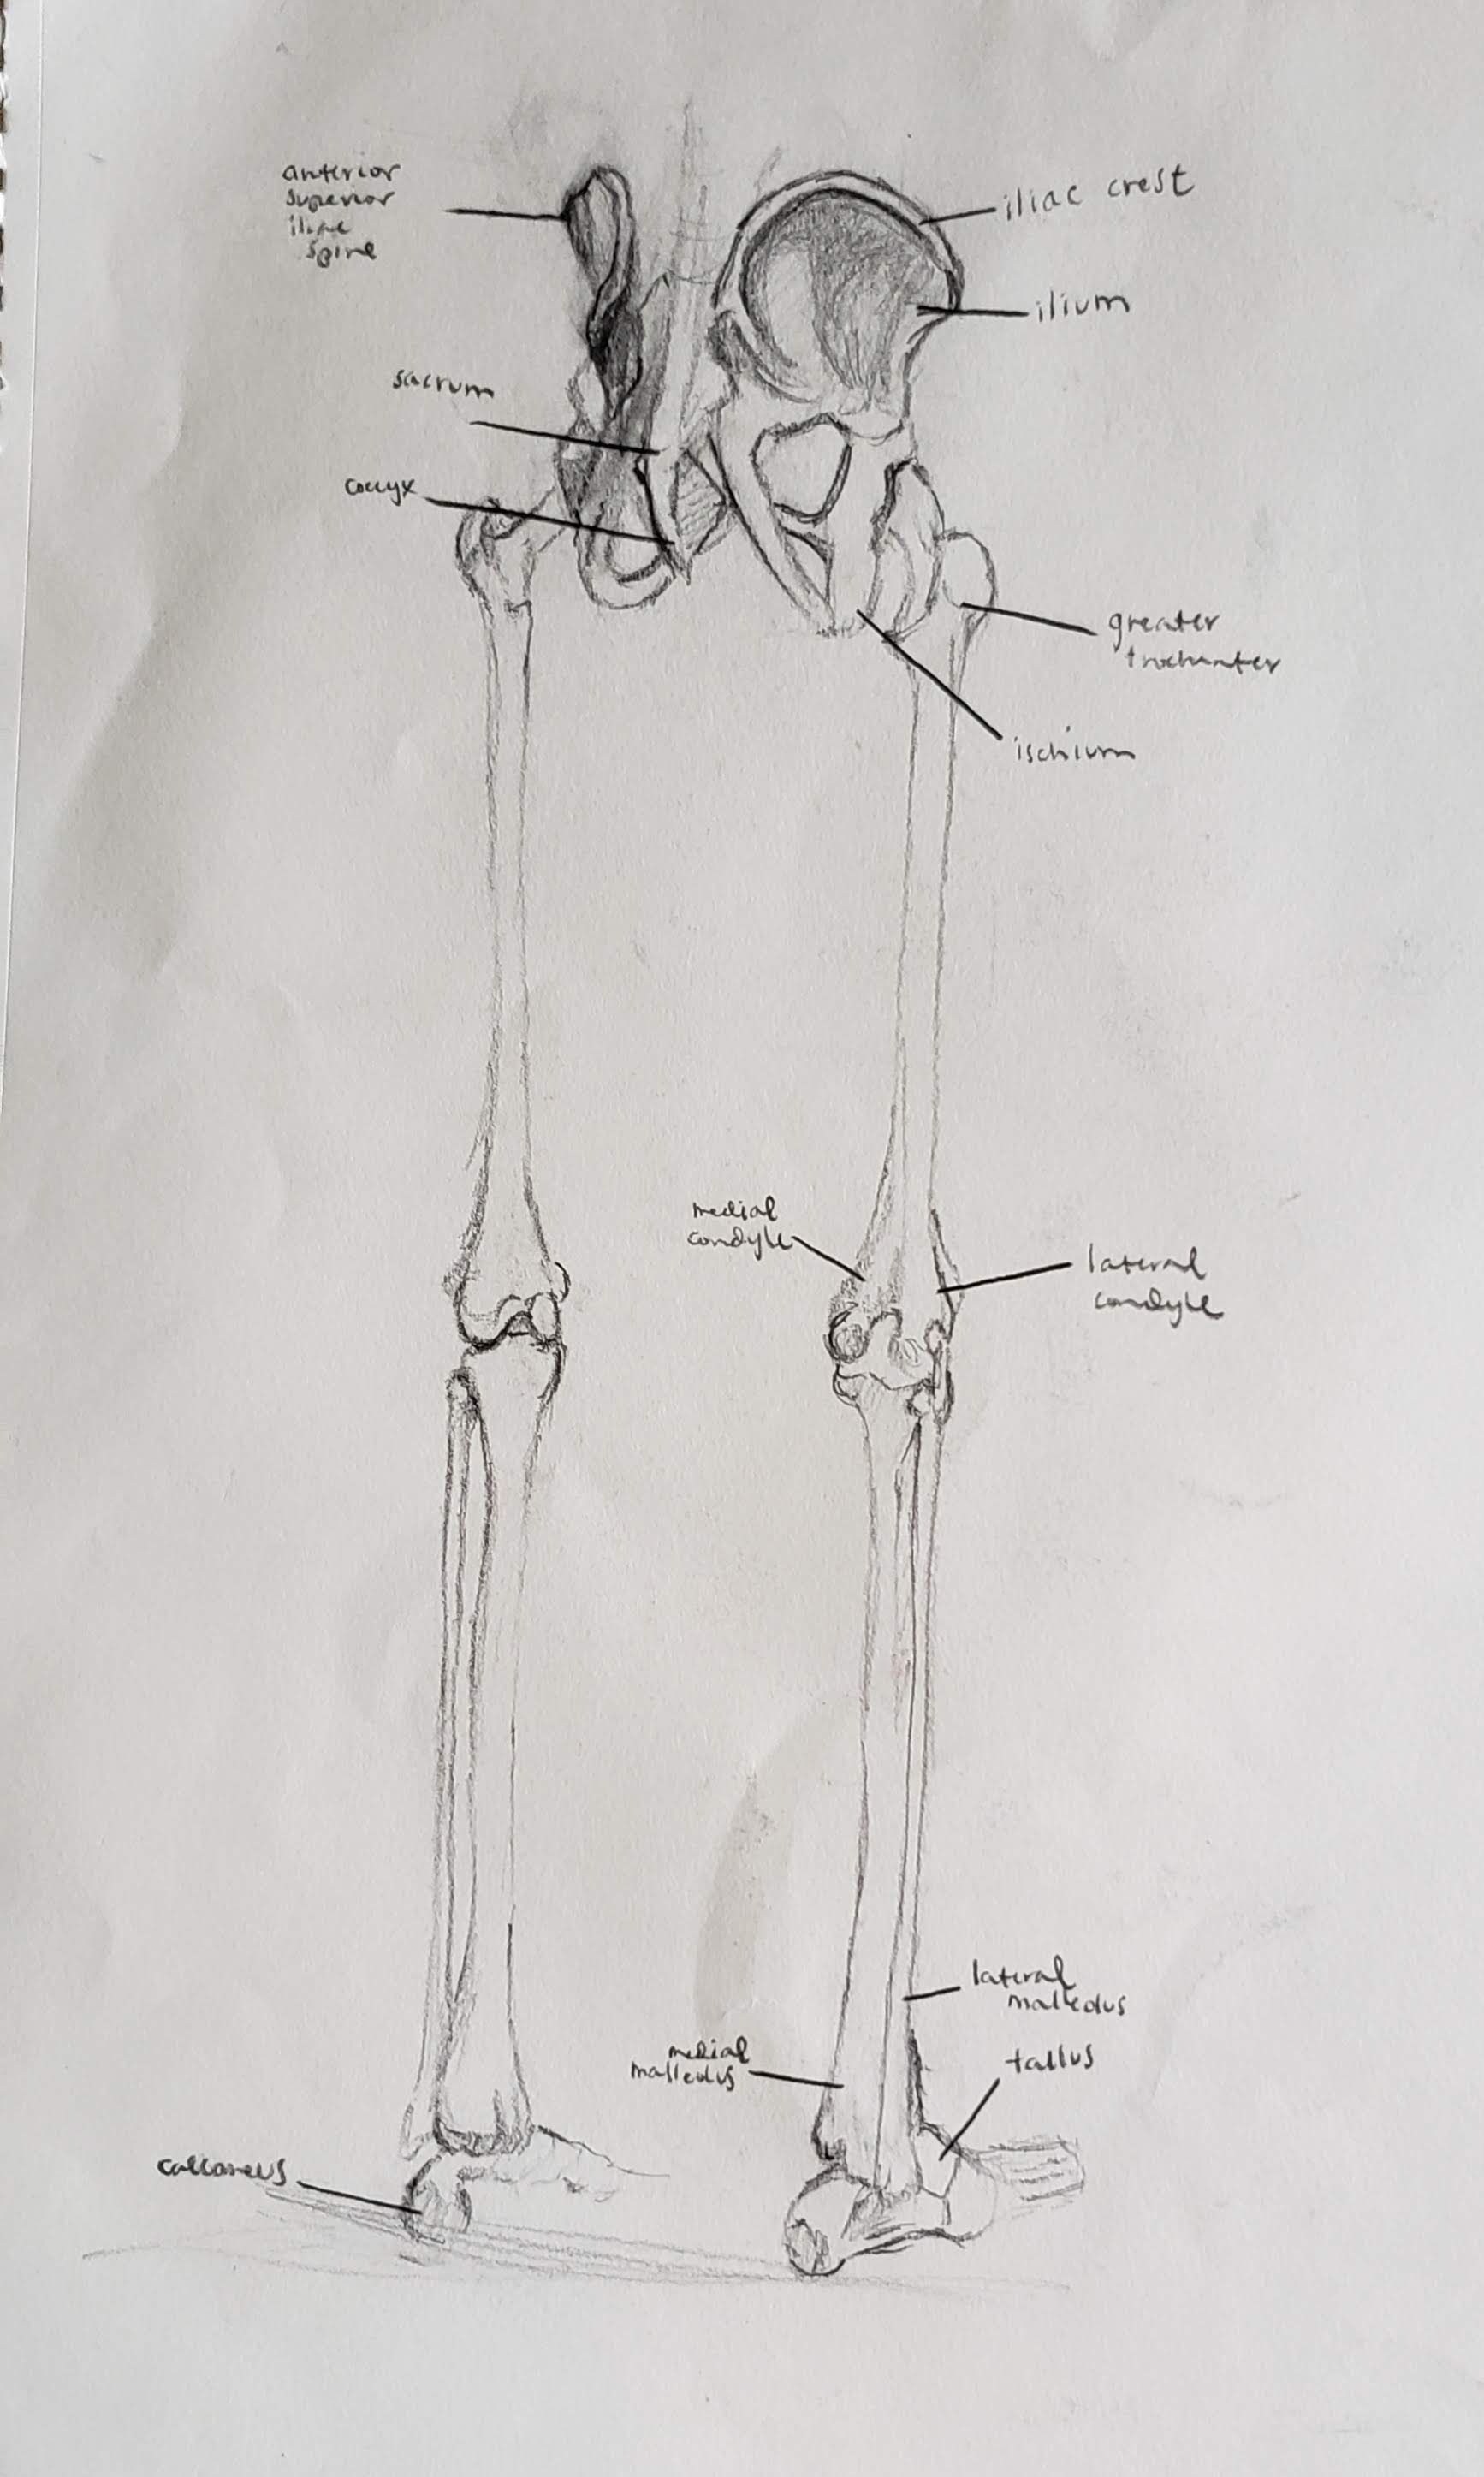 anterior
superior
iliac
spine
iliac crest
ilium
sacrum
coccyx
greater
trochanter
ischium
medial
condyle
lateral
condyle
lateral
malleolus
medial
malleolus
tallus
calcaneus